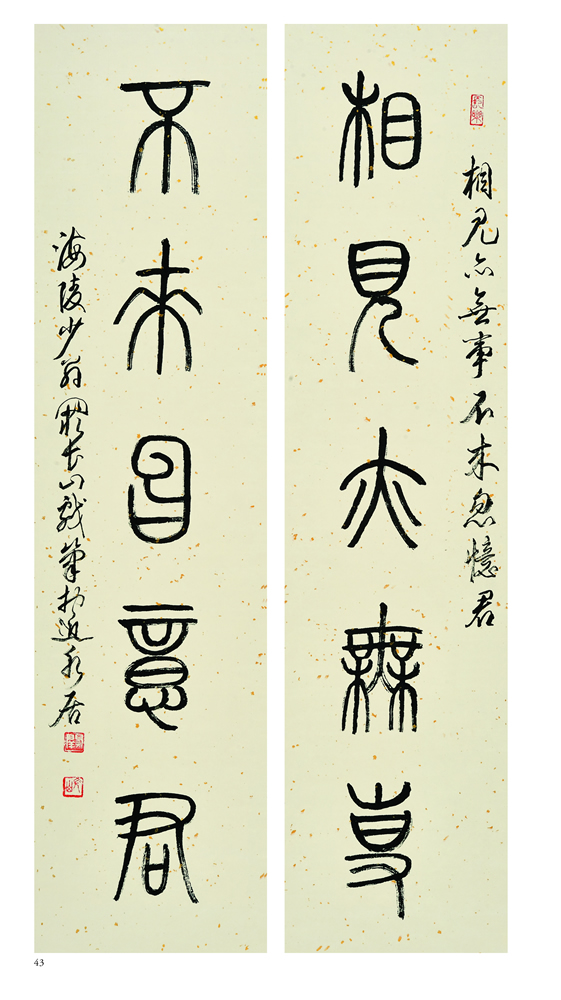 相見亦無事不来忽憶君
相見亦無事
不来曶意君
海陵少翁長山戲筆於近水居
43